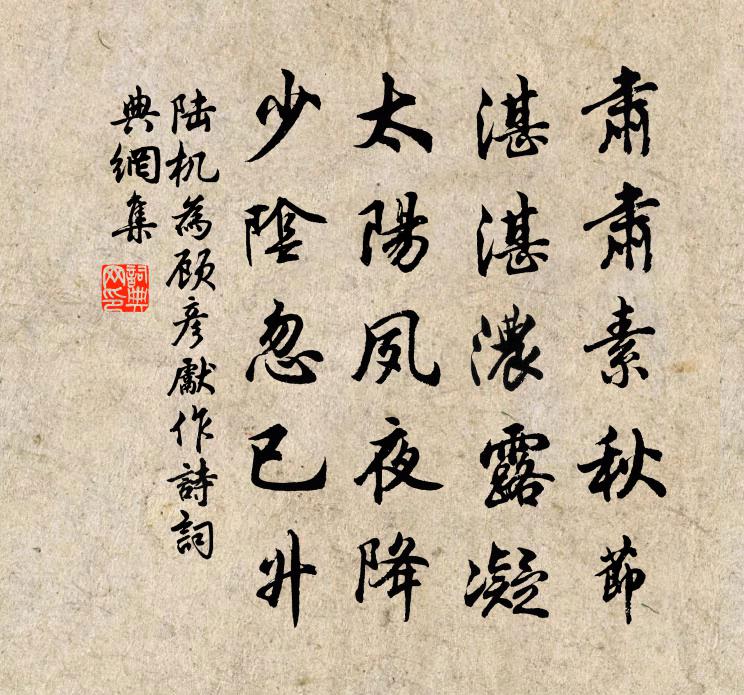 肅肅素秋節
湛湛濃露凝
太陽夙夜降
少陰忽已升
陆机為顾彦獻作詩詞
典網集
詞典網印